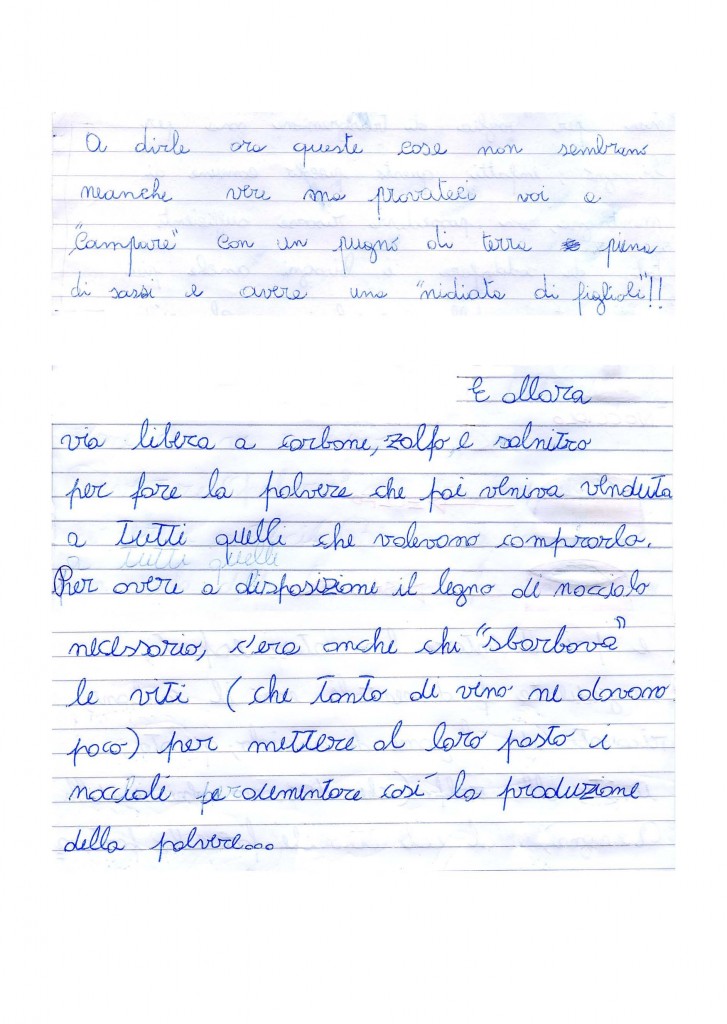 A dirle ora queste cose non sembrano
neanche vere ma provateci voi a
"Campare" con un pugno di terra piena
di sassi e avere una "nidiata di figlioli"!!
E allora
via libera a carbone, zolfo e salnitro
per fare la polvere che poi veniva venduta
a tutti quelli che volevano comprarla.
Per avere a disposizione il legno di nocciolo
necessario, c'era anche chi "sbarbava"
le viti (che tanto di vino ne davano
poco) per mettere al loro posto i
noccioli per aumentare così la produzione
della polvere...